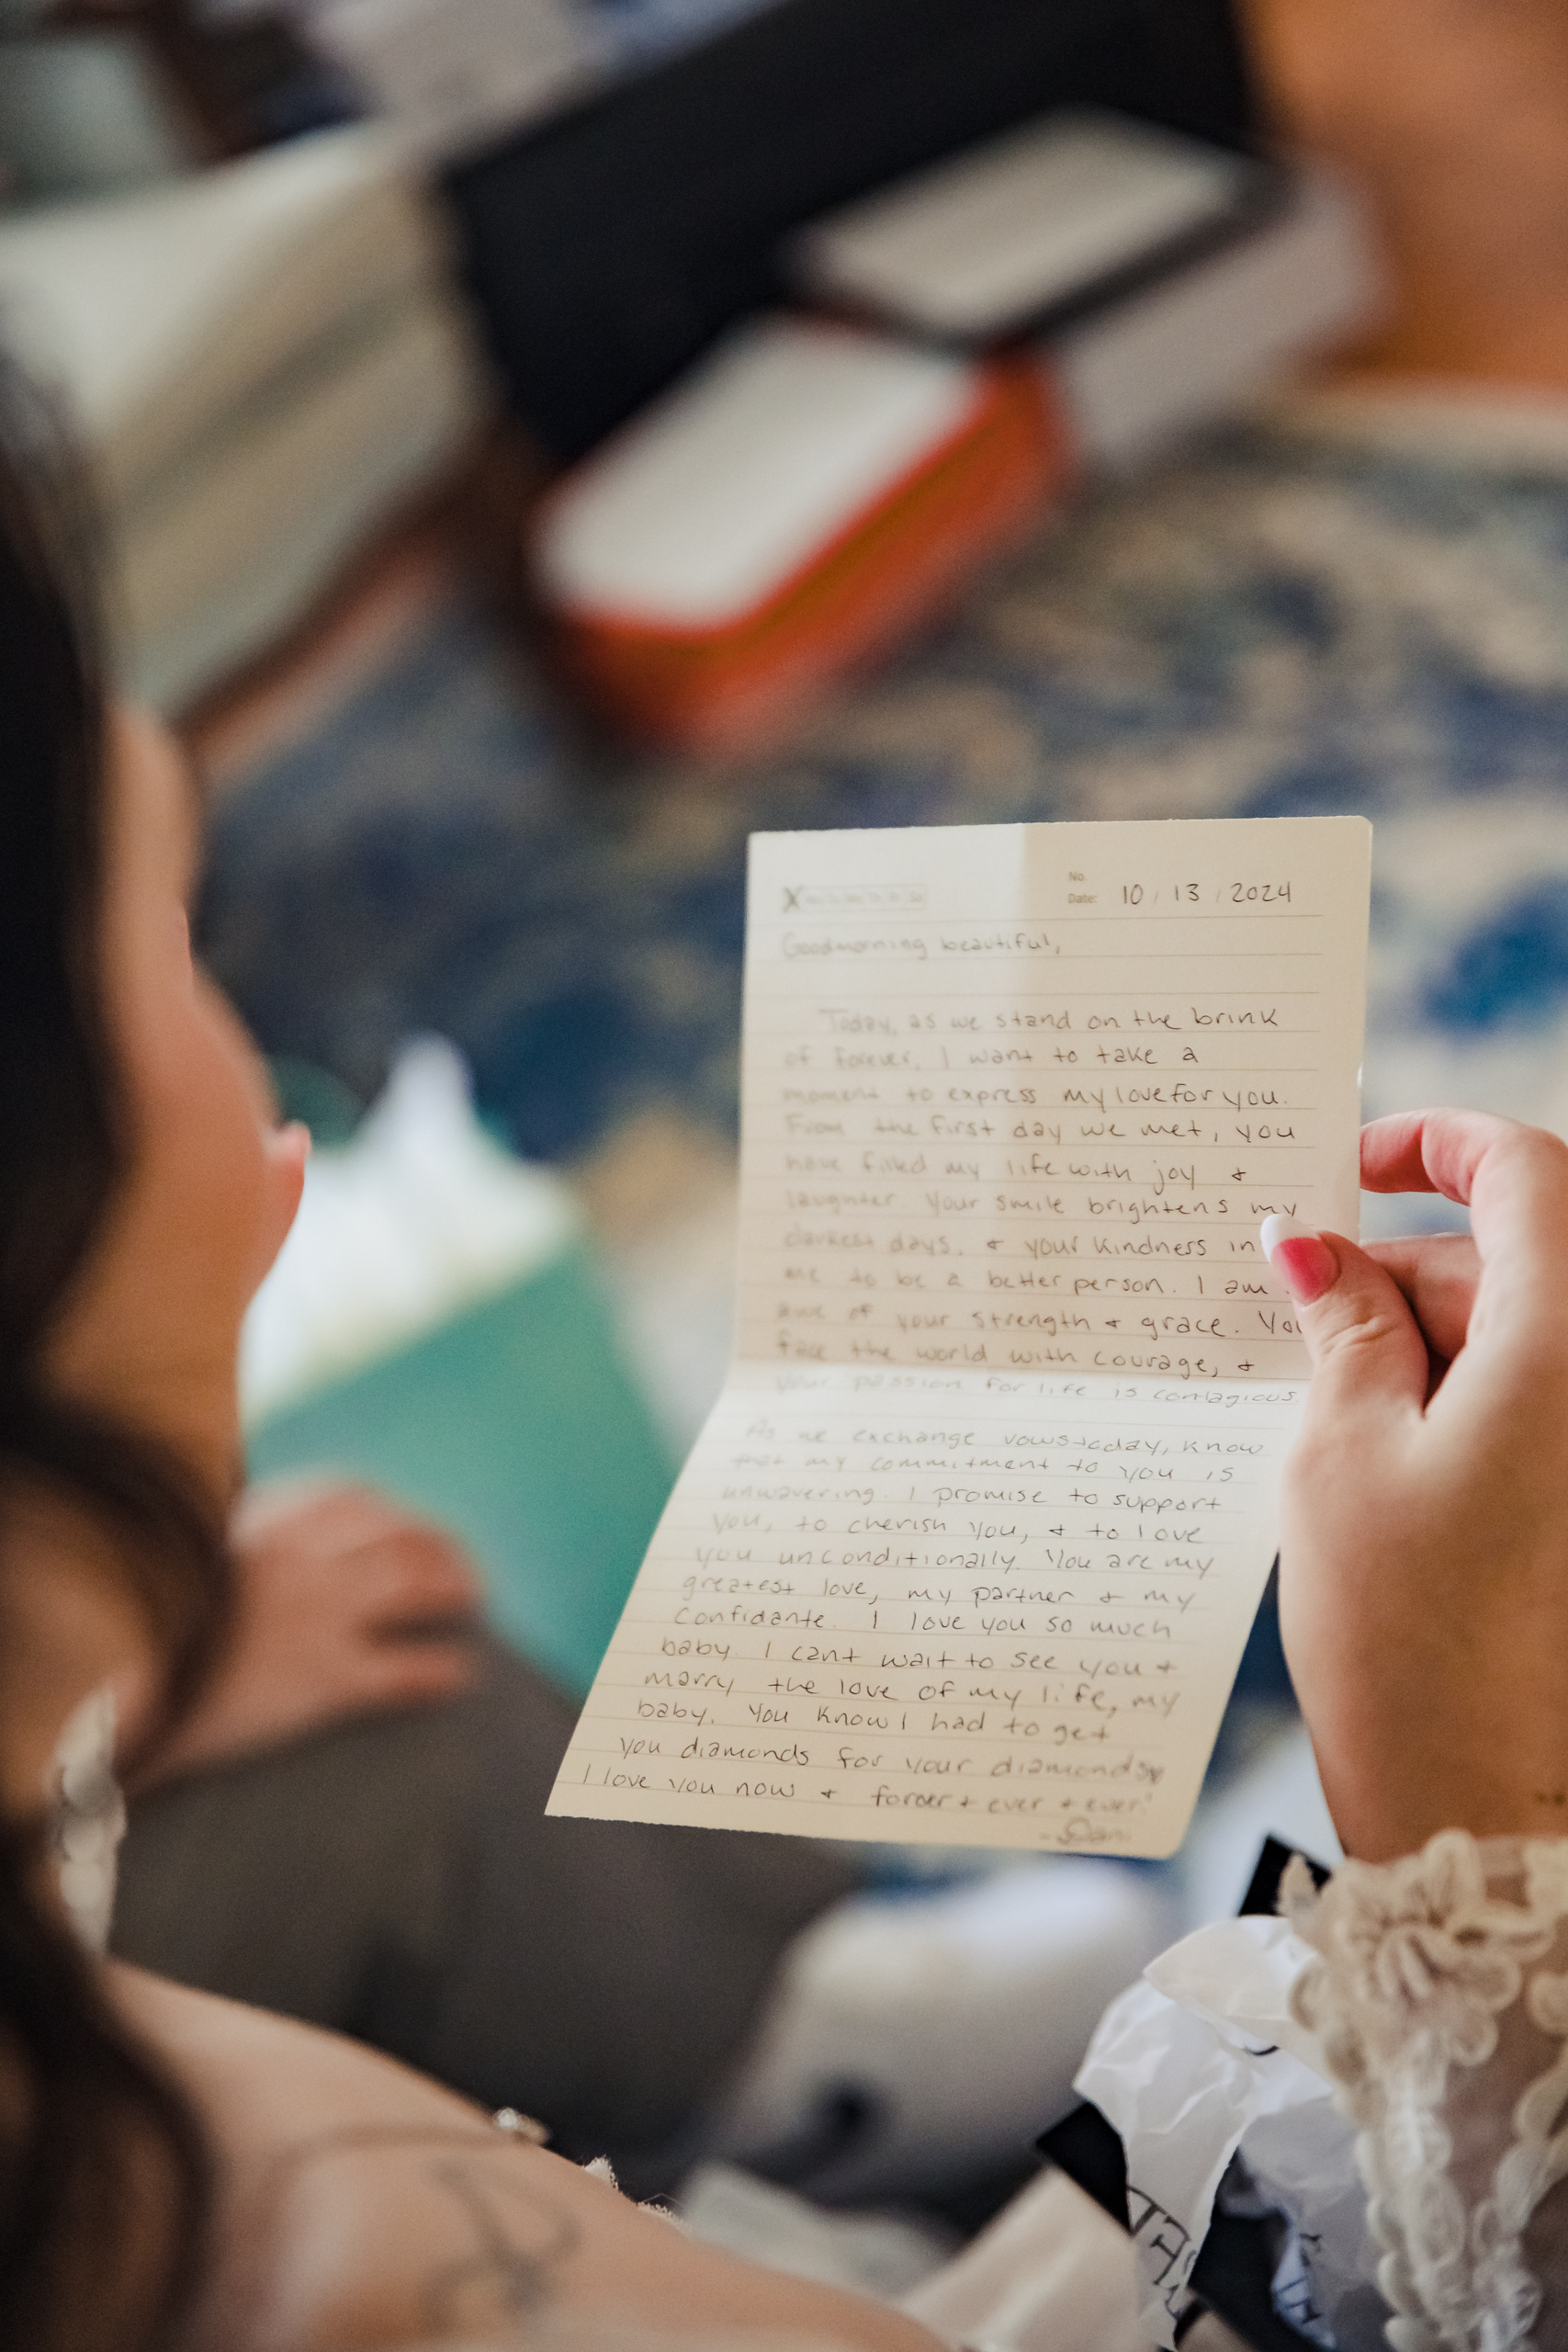 No.
Date: 10 / 13 / 2024
Goodmorning beautiful,
Today, as we stand on the brink
of forever, I want to take a
moment to express my love for you.
From the first day we met, you
have filled my life with joy &
laughter. Your smile brightens my
darkest days, & your kindness in
me to be a better person. I am
awe of your strength & grace. You
face the world with courage, &
your passion for life is contagious
As we exchange vows today, know
that my commitment to you is
unwavering. I promise to support
you, to cherish you, & to love
you unconditionally. You are my
greatest love, my partner & my
confidante. I love you so much
baby. I cant wait to see you &
marry the love of my life, my
baby. You know I had to get
you diamonds for your diamonds
I love you now & forever & ever & ever!
-Dani